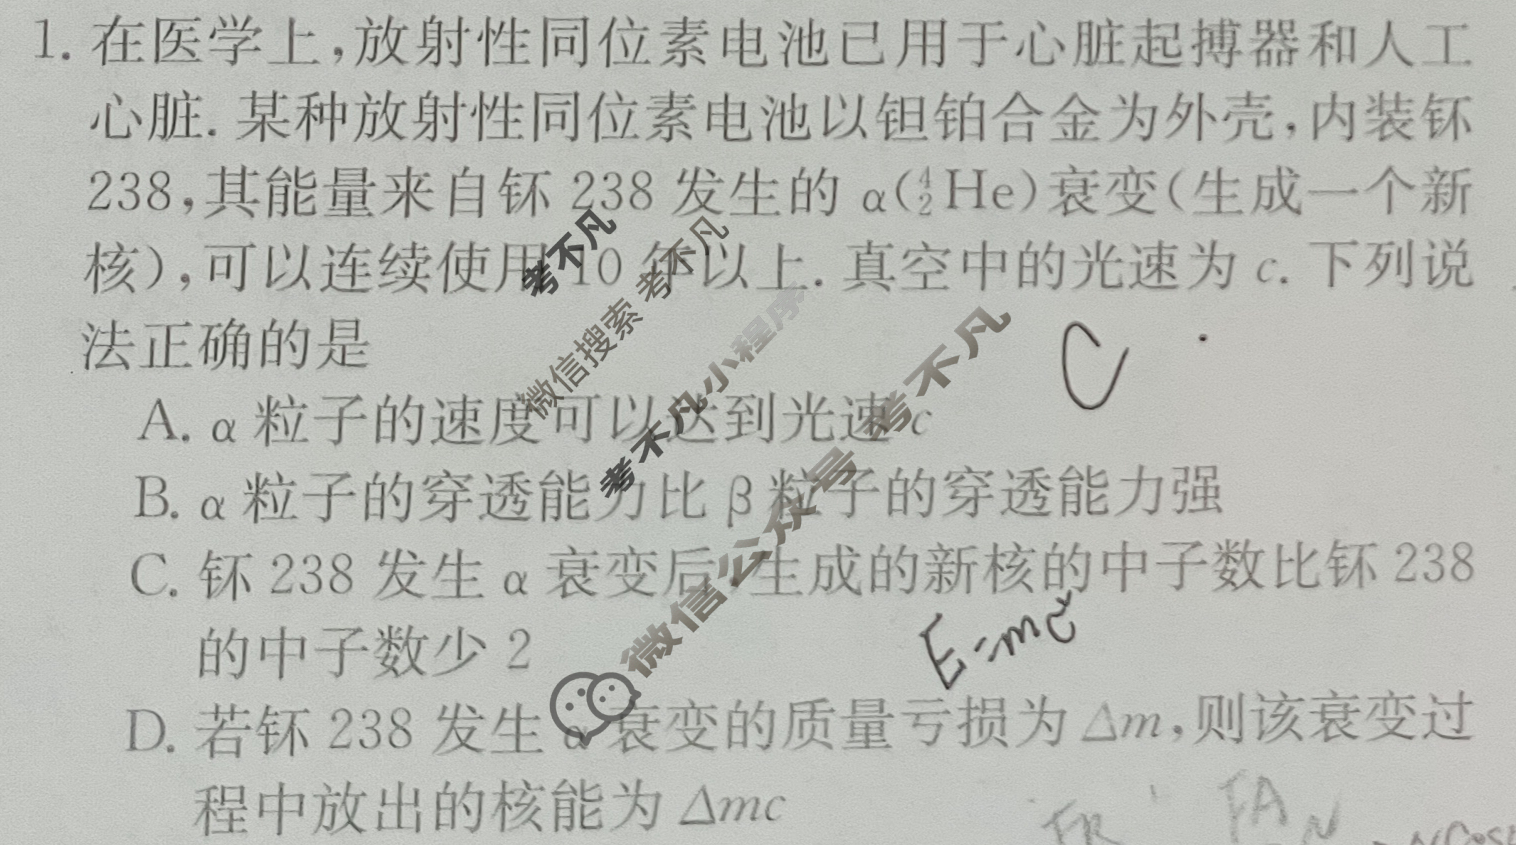 1. 在医学上,放射性同位素电池已用于心脏起搏器和人工
心脏. 某种放射性同位素电池以钽铂合金为外壳,内装钚
238,其能量来自钚 238 发生的 α(⁴₂He)衰变(生成一个新
核),可以连续使用 10 年以上. 真空中的光速为 c. 下列说
法正确的是
C
A. α 粒子的速度可以达到光速 c
B. α 粒子的穿透能力比 β 粒子的穿透能力强
C. 钚 238 发生 α 衰变后,生成的新核的中子数比钚 238
的中子数少 2
E=mc²
D. 若钚 238 发生 α 衰变的质量亏损为 Δm,则该衰变过
程中放出的核能为 Δmc
考不凡
微信搜索 考不凡
考不凡小程序
微信公众号 考不凡
FA
N